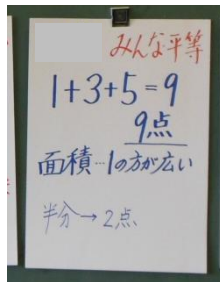 みんな平等
1+3+5=9
9点
面積…1の方が広い
半分→2点